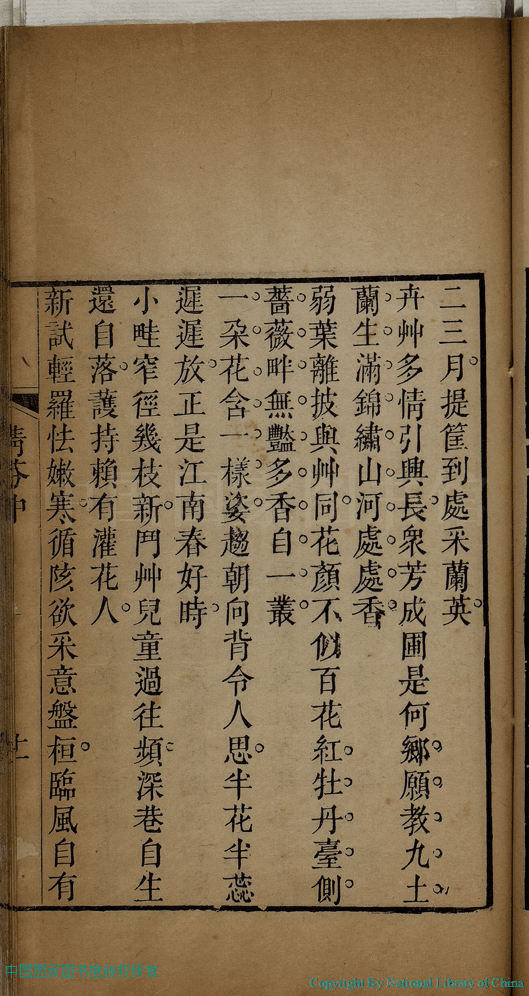 二三月提筐到處采蘭英
卉艸多情引興長衆芳成圃是何鄉願教九土
蘭生滿錦繡山河處處香
弱葉離披與艸同花顏不似百花紅牡丹臺側
薔薇畔無豔多香自一叢
一朶花含一樣姿趨朝向背令人思半花半蕊
遲遲放正是江南春好時
小畦窄徑幾枝新鬥艸兒童過往頻深巷自生
還自落護持賴有灌花人
新試輕羅怯嫩寒循陔欲采意盤桓臨風自有
清芬中
十一
Copyright By National Library of China